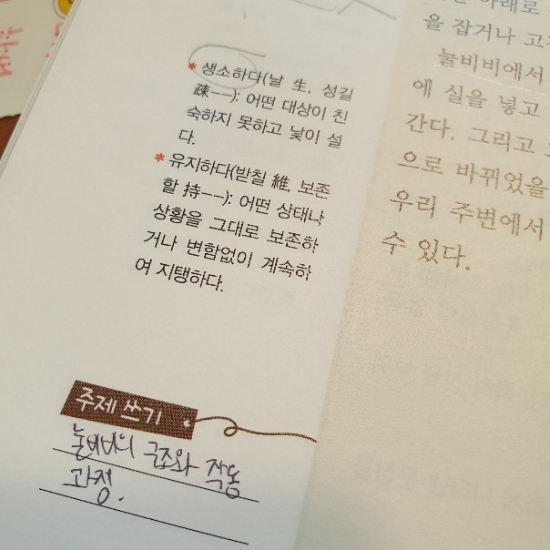 * 생소하다(날 生, 성길
疎--): 어떤 대상이 친
숙하지 못하고 낯이 설
다.
* 유지하다(받칠 維, 보존
할 持--): 어떤 상태나
상황을 그대로 보존하
거나 변함없이 계속하
여 지탱하다.
주제 쓰기
눌비비의 구조와 작동
과정.
아래로
을 잡거나 고
눌비비에서
에 실을 넣고
간다. 그리고
으로 바뀌었을
우리 주변에서
수 있다.